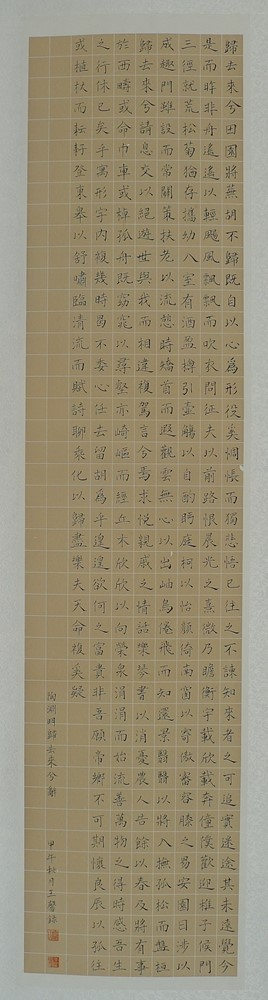 歸去來兮田園將蕪胡不歸既自以心為形役奚惆悵而獨悲悟已往之不諫知來者之可追實迷途其未遠覺今
是而昨非舟遙遙以輕颺風飄飄而吹衣問征夫以前路恨晨光之熹微乃瞻衡宇載欣載奔僮僕歡迎稚子候門
三徑就荒松菊猶存攜幼入室有酒盈樽引壺觴以自酌眄庭柯以怡顏倚南窗以寄傲審容膝之易安園日涉以
成趣門雖設而常關策扶老以流憩時矯首而遐觀雲無心以出岫鳥倦飛而知還景翳翳以將入撫孤松而盤桓
歸去來兮請息交以絕遊世與我而相違複駕言兮焉求悅親戚之情話樂琴書以消憂農人告餘以春及將有事
於西疇或命巾車或棹孤舟既窈窕以尋壑亦崎嶇而經丘木欣欣以向榮泉涓涓而始流善萬物之得時感吾生
之行休已矣乎寓形宇內複幾時曷不委心任去留胡為乎遑遑欲何之富貴非吾願帝鄉不可期懷良辰以孤往
或植杖而耘耔登東皋以舒嘯臨清流而賦詩聊乘化以歸盡樂夫天命複奚疑
陶淵明歸去來兮辭
甲午秋月王馨錄